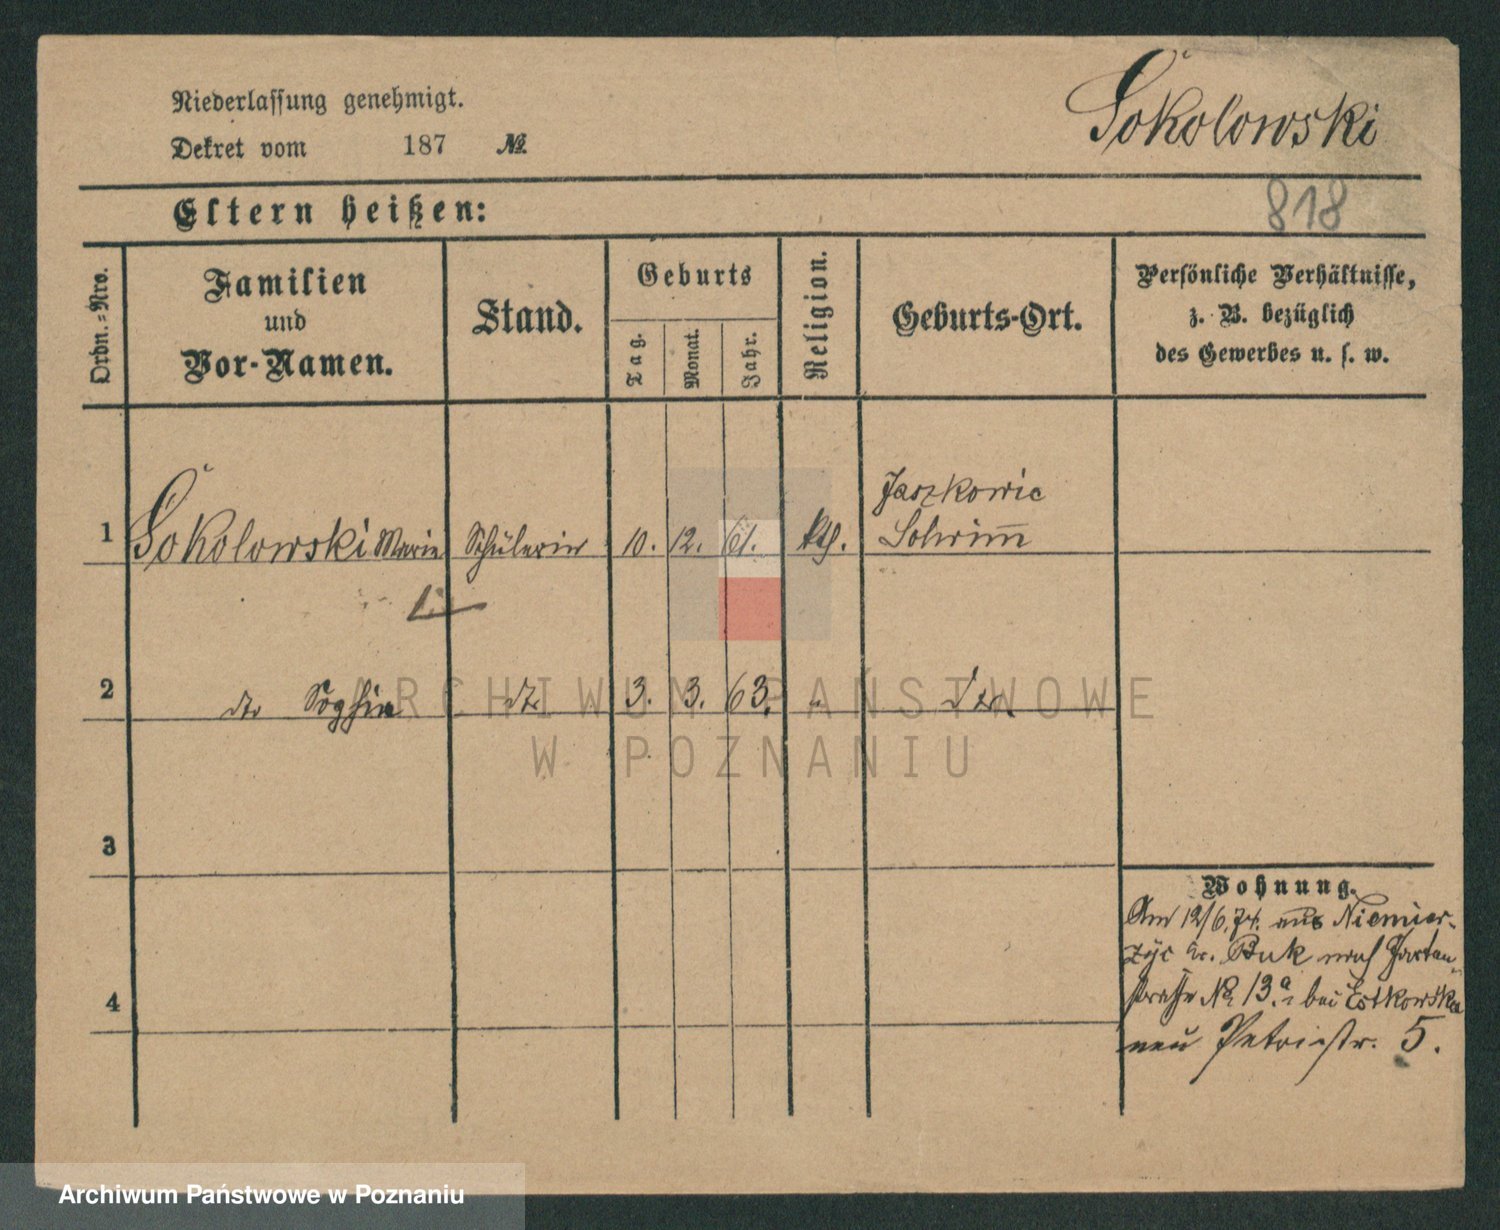 Niederlassung genehmigt.
Dekret vom 187 №
Sokolowski
818
Eltern heißen:
Ordn.-Nro.
Familien
und
Vor-Namen.
Stand.
Geburts
Tag.
Monat.
Jahr.
Religion.
Geburts-Ort.
Persönliche Verhältnisse,
z. B. bezüglich
des Gewerbes u. s. w.
1 Sokolowski Marie Schülerin 10. 12. 61. kth. Jaszkowic
Schrim̅
2 dto Sophie dto 3. 3. 63. " dto.
3
4
Wohnung.
Am 12/6. 74. aus Niemier-
zyc Kr. Buk nach Garten-
straße № 13ᵃ. bei Estkowska
neu Petristr. 5.
ARCHIWUM PAŃSTWOWE
W POZNANIU
Archiwum Państwowe w Poznaniu